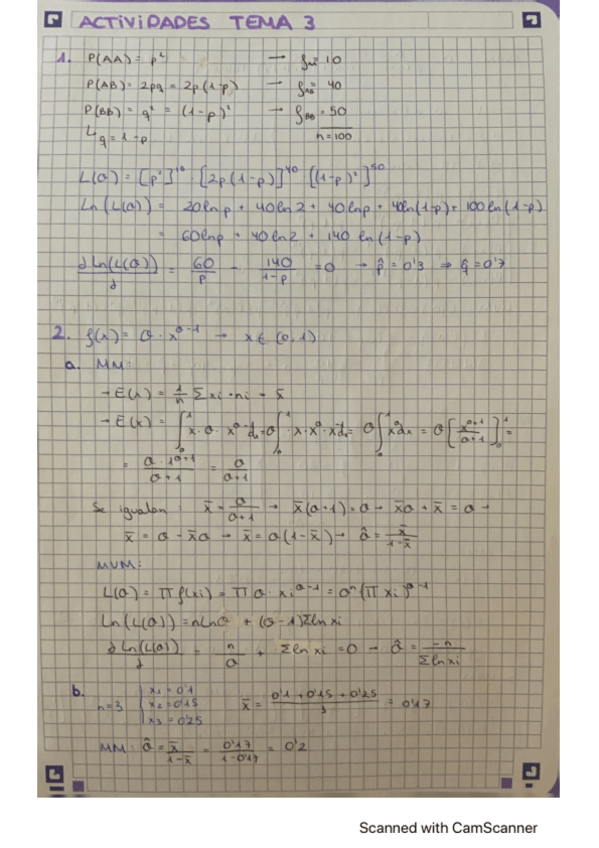 ACTIVIDADES TEMA 3
1. P(AA) = p² → fAA = 10
P(AB) = 2pq = 2p(1-p) → fAB = 40
P(BB) = q² = (1-p)² → fBB = 50
↳ q = 1-p n=100
L(θ) = [p²]¹⁰ · [2p(1-p)]⁴⁰ · [(1-p)²]⁵⁰
Ln(L(θ)) = 20lnp + 40ln2 + 40lnp + 40ln(1-p) + 100ln(1-p)
= 60lnp + 40ln2 + 140 ln(1-p)
∂Ln(L(θ))/∂ = 60/p - 140/1-p = 0 → p̂ = 0'3 ⇒ q̂ = 0'7
2. f(x) = θ · x^θ-1 → x ∈ (0,1)
a. MM:
→ E(x) = 1/n Σ xi · ni = x̄
→ E(x) = ∫₀¹ x · θ · x^θ-1 dx = θ∫₀¹ x · x^θ · x⁻¹ dx = θ∫₀¹ x^θ dx = θ[x^θ+1/θ+1]₀¹ =
= θ · 1^θ+1/θ+1 = θ/θ+1
Se igualan: x̄ = θ/θ+1 → x̄(θ+1) = θ → x̄θ + x̄ = θ →
x̄ = θ - x̄θ → x̄ = θ(1-x̄) → θ̂ = x̄/1-x̄
MVM:
L(θ) = Π f(xi) = Π θ · xi^θ-1 = θⁿ(Π xi)^θ-1
Ln(L(θ)) = nlnθ + (θ-1)Σlnxi
∂Ln(L(θ))/∂ = n/θ + Σln xi = 0 → θ̂ = -n/Σlnxi
b. n=3 { x1 = 0'1 x̄ = 0'1 + 0'15 + 0'25/3 = 0'17
x2 = 0'15
x3 = 0'25
MM: θ̂ = x̄/1-x̄ = 0'17/1-0'17 = 0'2
Scanned with CamScanner